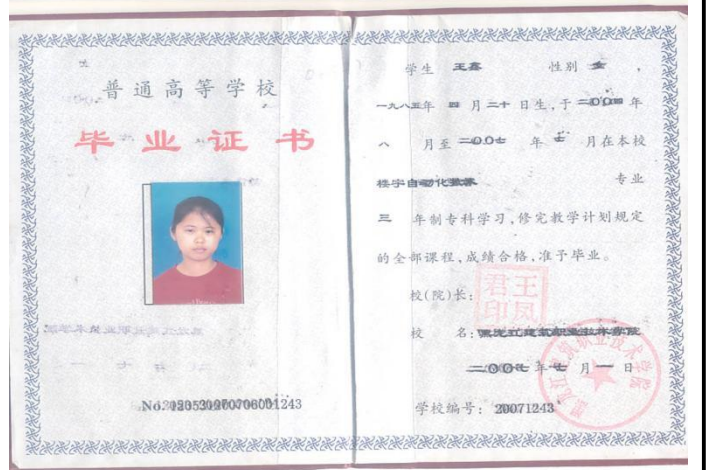 普通高等学校
毕业证书
学生 王鑫 性别 女 ,
一九八五年 四 月二十 日生,于 二〇〇四 年
八 月至 二〇〇七 年 七 月在本校
楼宇自动化 专业
三 年制专科学习,修完教学计划规定
的全部课程,成绩合格,准予毕业。
校(院)长:
君王
印凤
校 名:黑龙江建筑职业技术学院
二〇〇七 年 七 月 一 日
学校编号: 20071243